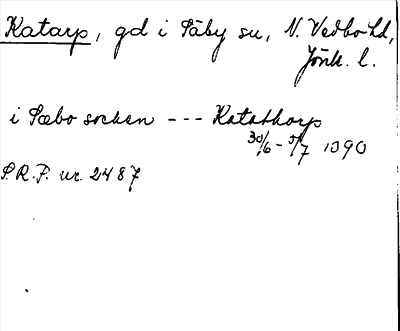 Katarp, gd i Säby sn, N. Vedbo hd,
Jönk. l.
i Sæbo socken --- Katathorp
30/6 - 5/7 1390
S.R.P. nr. 2487